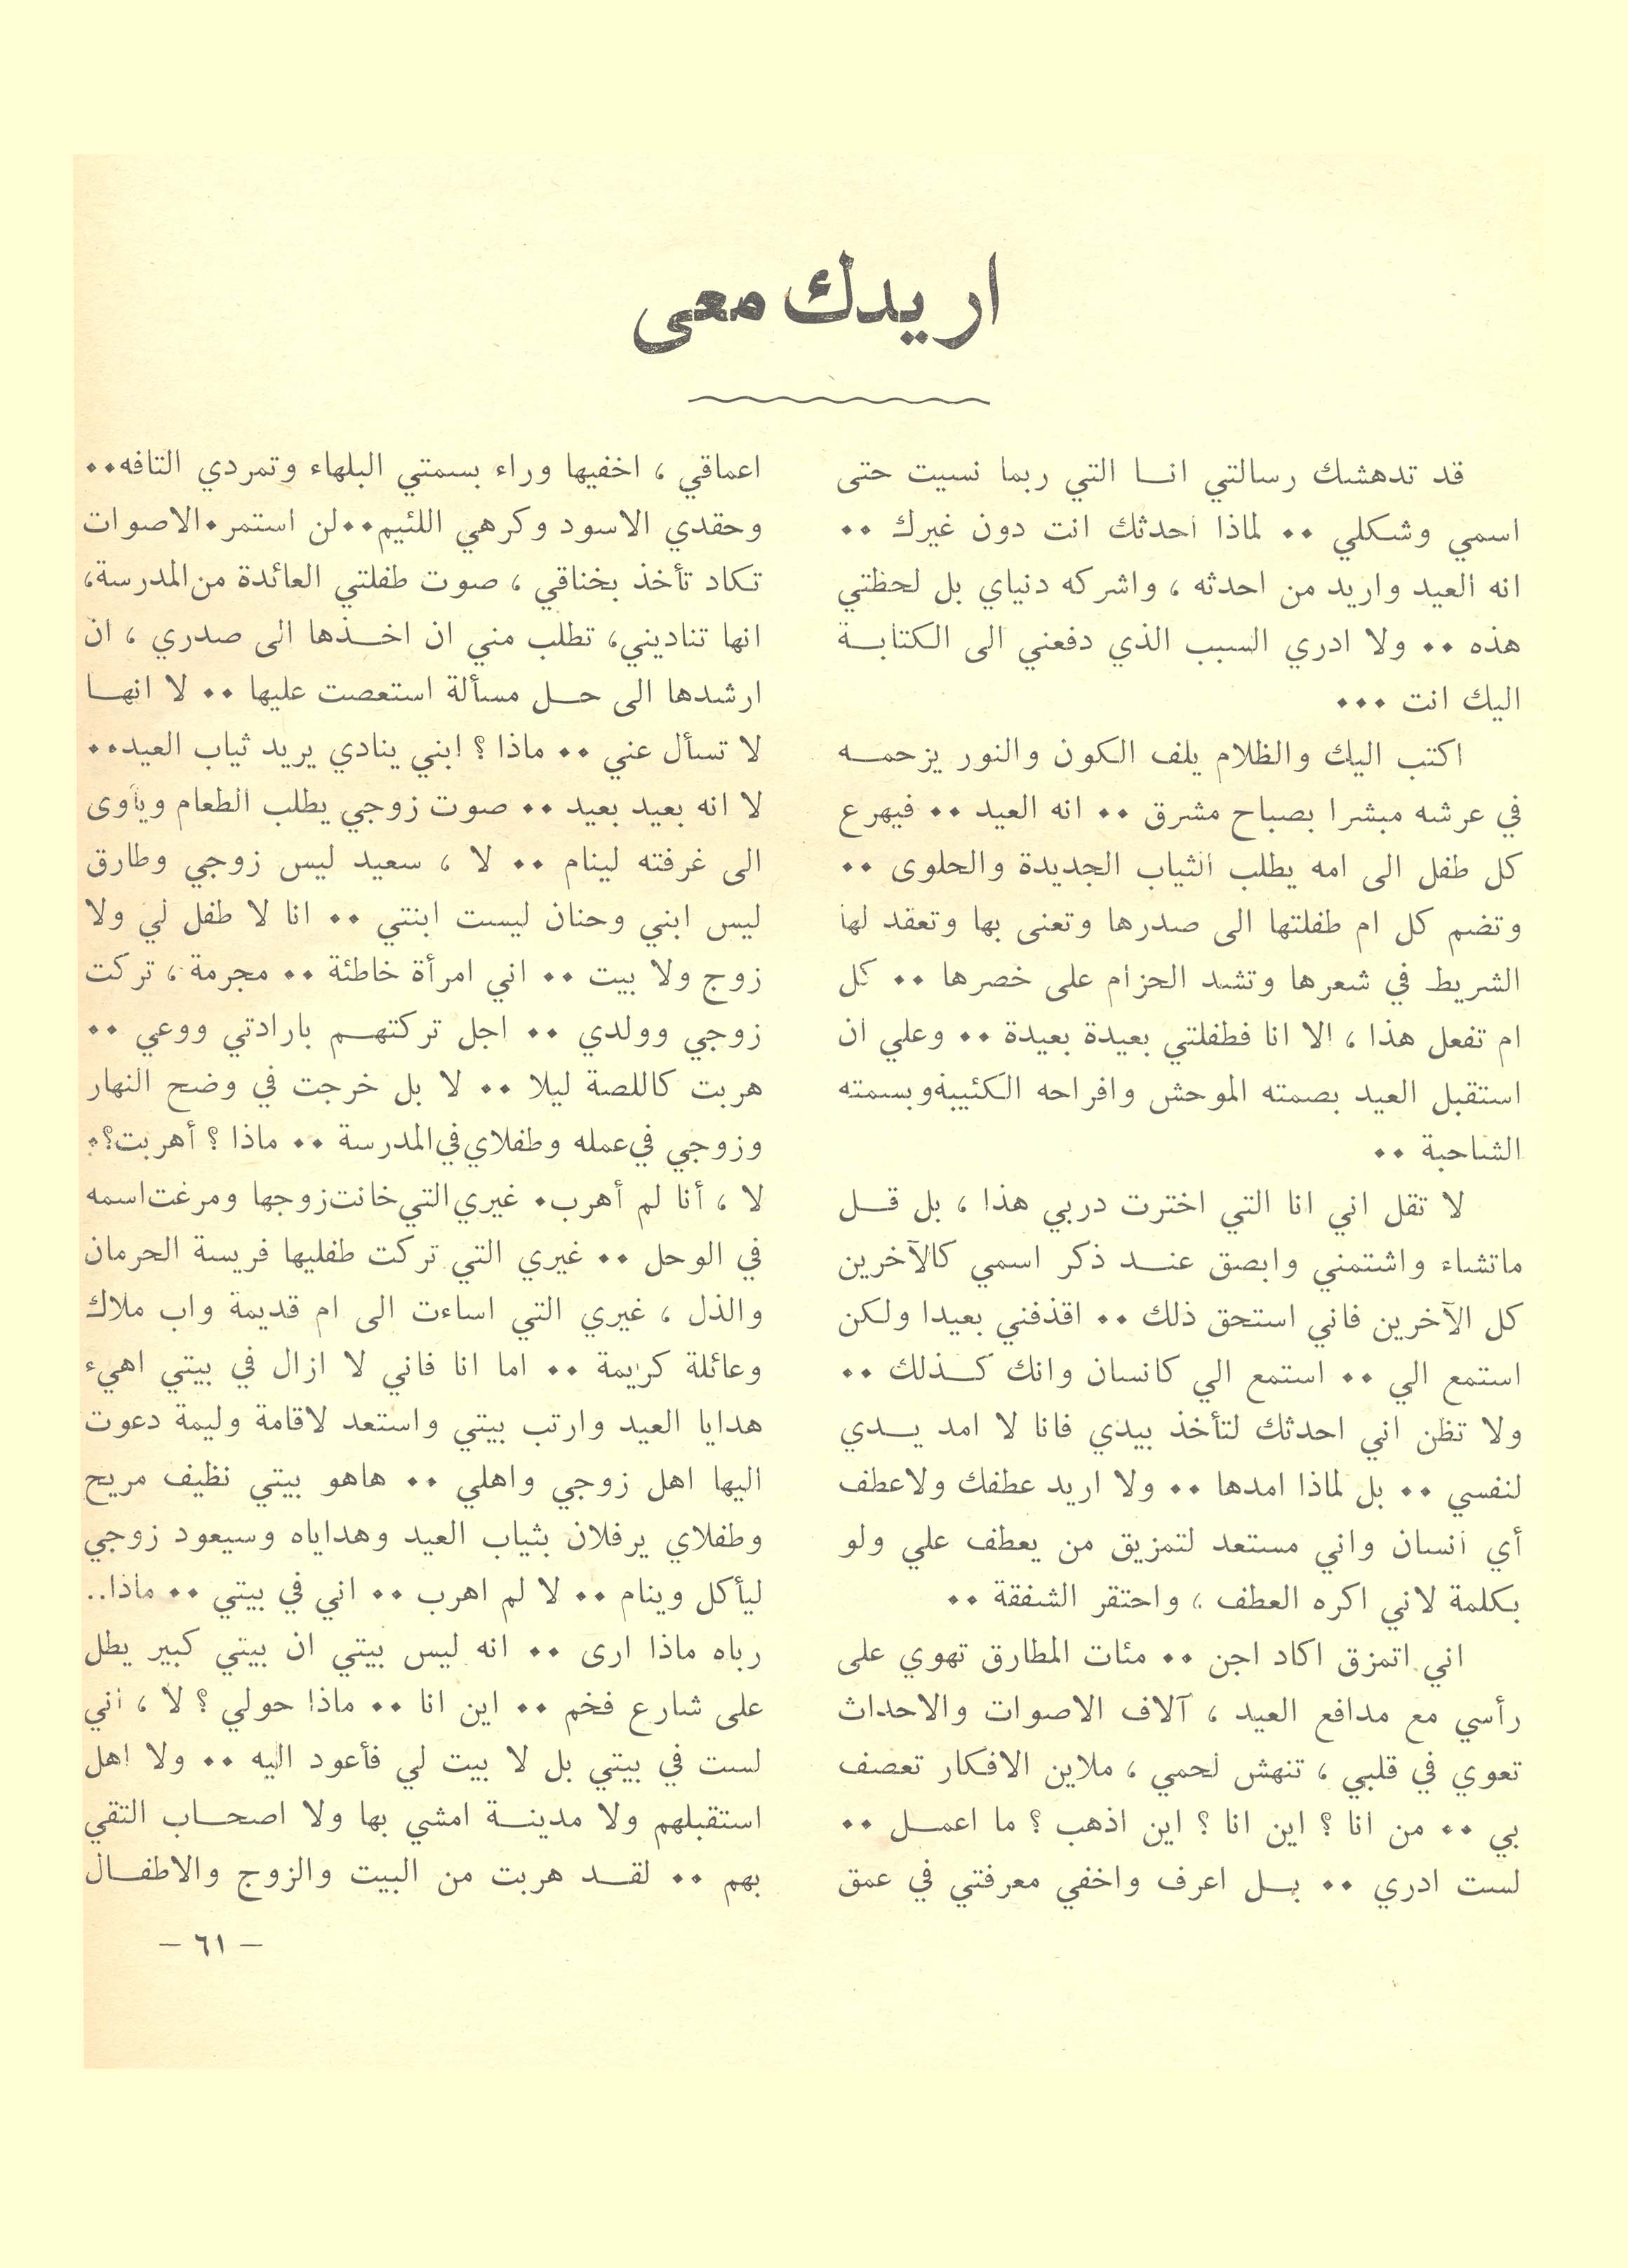 اريدك معي
قد تدهشك رسالتي انا التي ربما نسيت حتى
اسمي وشكلي ٠٠ لماذا احدثك انت دون غيرك ٠٠
انه العيد واريد من احدثه ، واشركه دنياي بل لحظتي
هذه ٠٠ ولا ادري السبب الذي دفعني الى الكتابة
اليك انت ٠٠٠
اكتب اليك والظلام يلف الكون والنور يزحمه
في عرشه مبشرا بصباح مشرق ٠٠ انه العيد ٠٠ فيهرع
كل طفل الى امه يطلب الثياب الجديدة والحلوى ٠٠
وتضم كل ام طفلتها الى صدرها وتعنى بها وتعقد لها
الشريط في شعرها وتشد الحزام على خصرها ٠٠ كل
ام تفعل هذا ، الا انا فطفلتي بعيدة بعيدة ٠٠ وعلي ان
استقبل العيد بصمته الموحش وافراحه الكئيبة وبسمته
الشاحبة ٠٠
لا تقل اني انا التي اخترت دربي هذا ، بل قل
ماتشاء واشتمني وابصق عند ذكر اسمي كالآخرين
كل الآخرين فاني استحق ذلك ٠٠ اقذفني بعيدا ولكن
استمع الي ٠٠ استمع الي كانسان وانك كذلك ٠٠
ولا تظن اني احدثك لتأخذ بيدي فانا لا امد يدي
لنفسي ٠٠ بل لماذا امدها ٠٠ ولا اريد عطفك ولاعطف
أي انسان واني مستعد لتمزيق من يعطف علي ولو
بكلمة لاني اكره العطف ، واحتقر الشفقة ٠٠
اني اتمزق اكاد اجن ٠٠ مئات المطارق تهوي على
رأسي مع مدافع العيد ، آلاف الاصوات والاحداث
تعوي في قلبي ، تنهش لحمي ، ملاين الافكار تعصف
بي ٠٠ من انا ؟ اين انا ؟ اين اذهب ؟ ما اعمل ٠٠
لست ادري ٠٠ بل اعرف واخفي معرفتي في عمق
اعماقي ، اخفيها وراء بسمتي البلهاء وتمردي التافه٠٠
وحقدي الاسود وكرهي اللئيم٠٠لن استمر٠الاصوات
تكاد تأخذ بخناقي ، صوت طفلتي العائدة من المدرسة،
انها تناديني، تطلب مني ان اخذها الى صدري ، ان
ارشدها الى حل مسألة استعصت عليها ٠٠ لا انها
لا تسأل عني ٠٠ ماذا ؟ ابني ينادي يريد ثياب العيد٠٠
لا انه بعيد بعيد ٠٠ صوت زوجي يطلب الطعام ويأوى
الى غرفته لينام ٠٠ لا ، سعيد ليس زوجي وطارق
ليس ابني وحنان ليست ابنتي ٠٠ انا لا طفل لي ولا
زوج ولا بيت ٠٠ اني امرأة خاطئة ٠٠ مجرمة ، تركت
زوجي وولدي ٠٠ اجل تركتهم بارادتي ووعي ٠٠
هربت كاللصة ليلا ٠٠ لا بل خرجت في وضح النهار
وزوجي في عمله وطفلاي في المدرسة ٠٠ ماذا ؟ أهربت؟٠
لا ، أنا لم أهرب٠ غيري التي خانت زوجها ومرغت اسمه
في الوحل ٠٠ غيري التي تركت طفليها فريسة الحرمان
والذل ، غيري التي اساءت الى ام قديمة واب ملاك
وعائلة كريمة ٠٠ اما انا فاني لا ازال في بيتي اهيء
هدايا العيد وارتب بيتي واستعد لاقامة وليمة دعوت
اليها اهل زوجي واهلي ٠٠ هاهو بيتي نظيف مريح
وطفلاي يرفلان بثياب العيد وهداياه وسيعود زوجي
ليأكل وينام ٠٠ لا لم اهرب ٠٠ اني في بيتي ٠٠ ماذا..
رباه ماذا ارى ٠٠ انه ليس بيتي ان بيتي كبير يطل
على شارع فخم ٠٠ اين انا ٠٠ ماذا حولي ؟ لا ، اني
لست في بيتي بل لا بيت لي فأعود اليه ٠٠ ولا اهل
استقبلهم ولا مدينة امشي بها ولا اصحاب التقي
بهم ٠٠ لقد هربت من البيت والزوج والاطفال
— ٦١ —